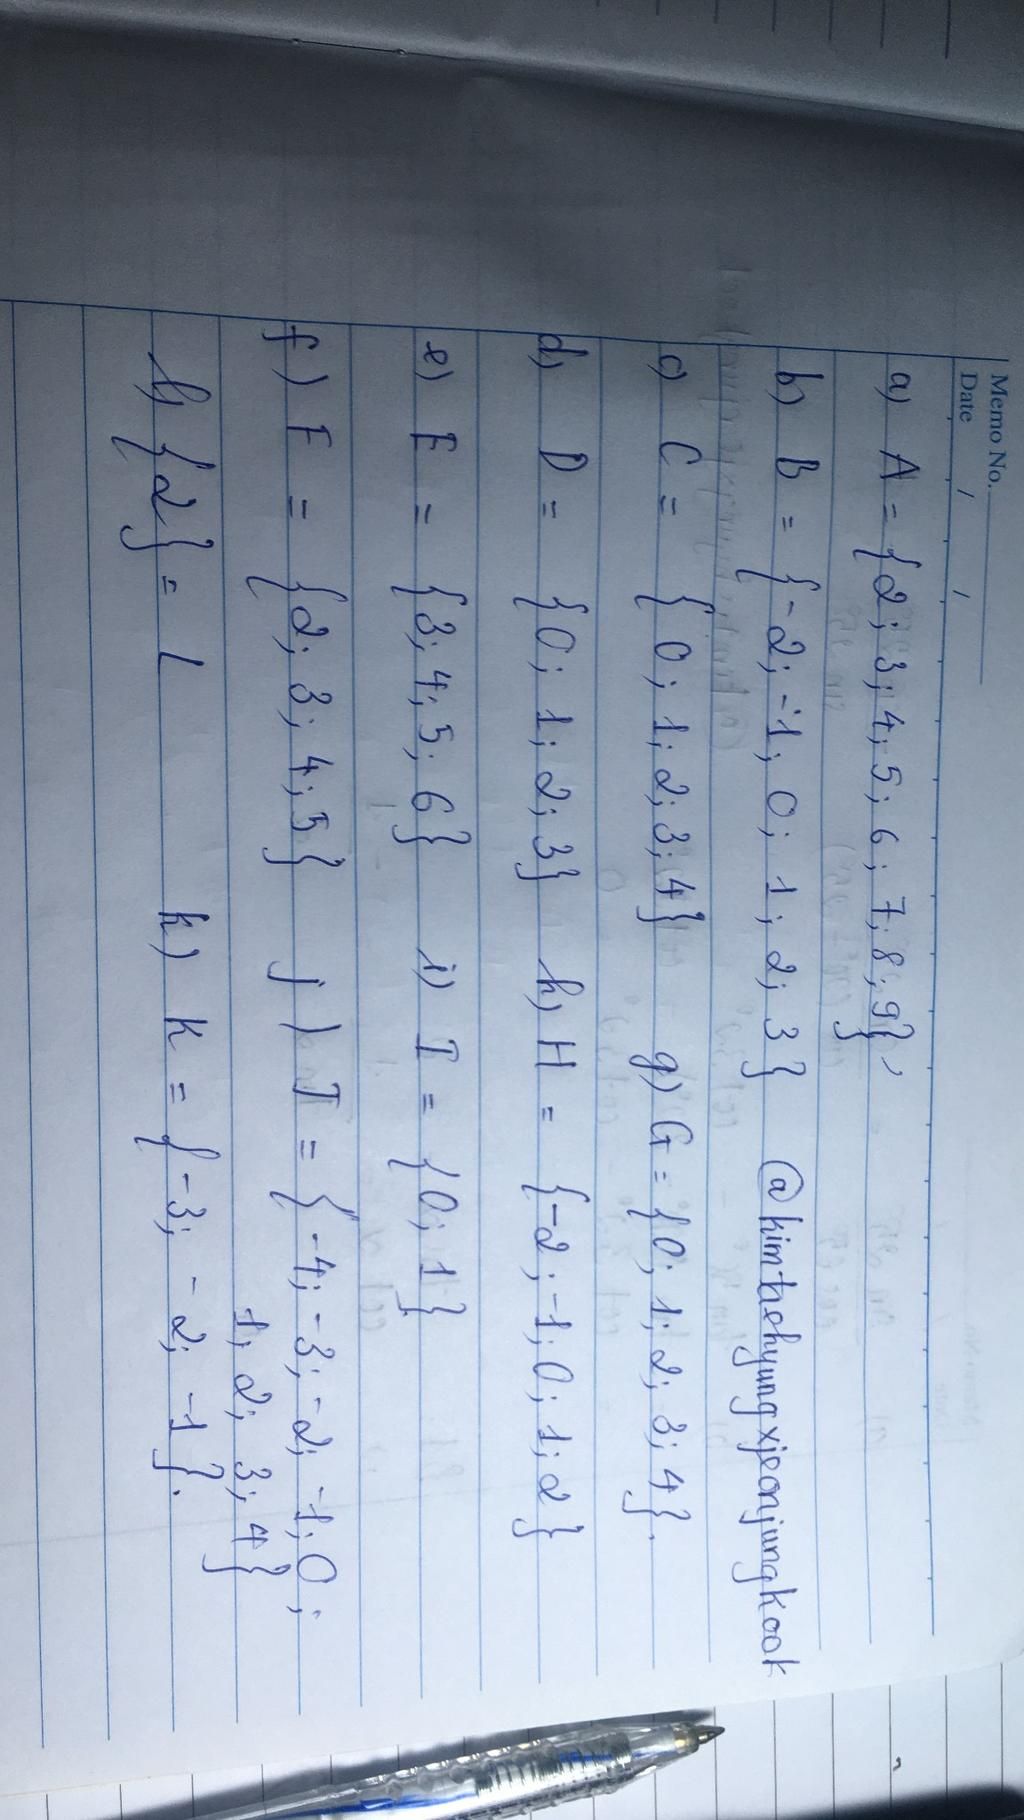 Memo No.
Date / /
a) A = {2; 3; 4; 5; 6; 7; 8; 9},
b) B = {-2; -1; 0; 1; 2; 3} @kimtaehyungxjeonjungkook
c) C = {0; 1; 2; 3; 4} g) G = {0; 1; 2; 3; 4}.
d) D = {0; 1; 2; 3} h) H = {-2; -1; 0; 1; 2}
e) E = {3; 4; 5; 6} i) I = {0; 1}
f) F = {2; 3; 4; 5} j) J = {-4; -3; -2; -1; 0;
1; 2; 3; 4}
l) {2} = L k) K = {-3; -2; -1}.